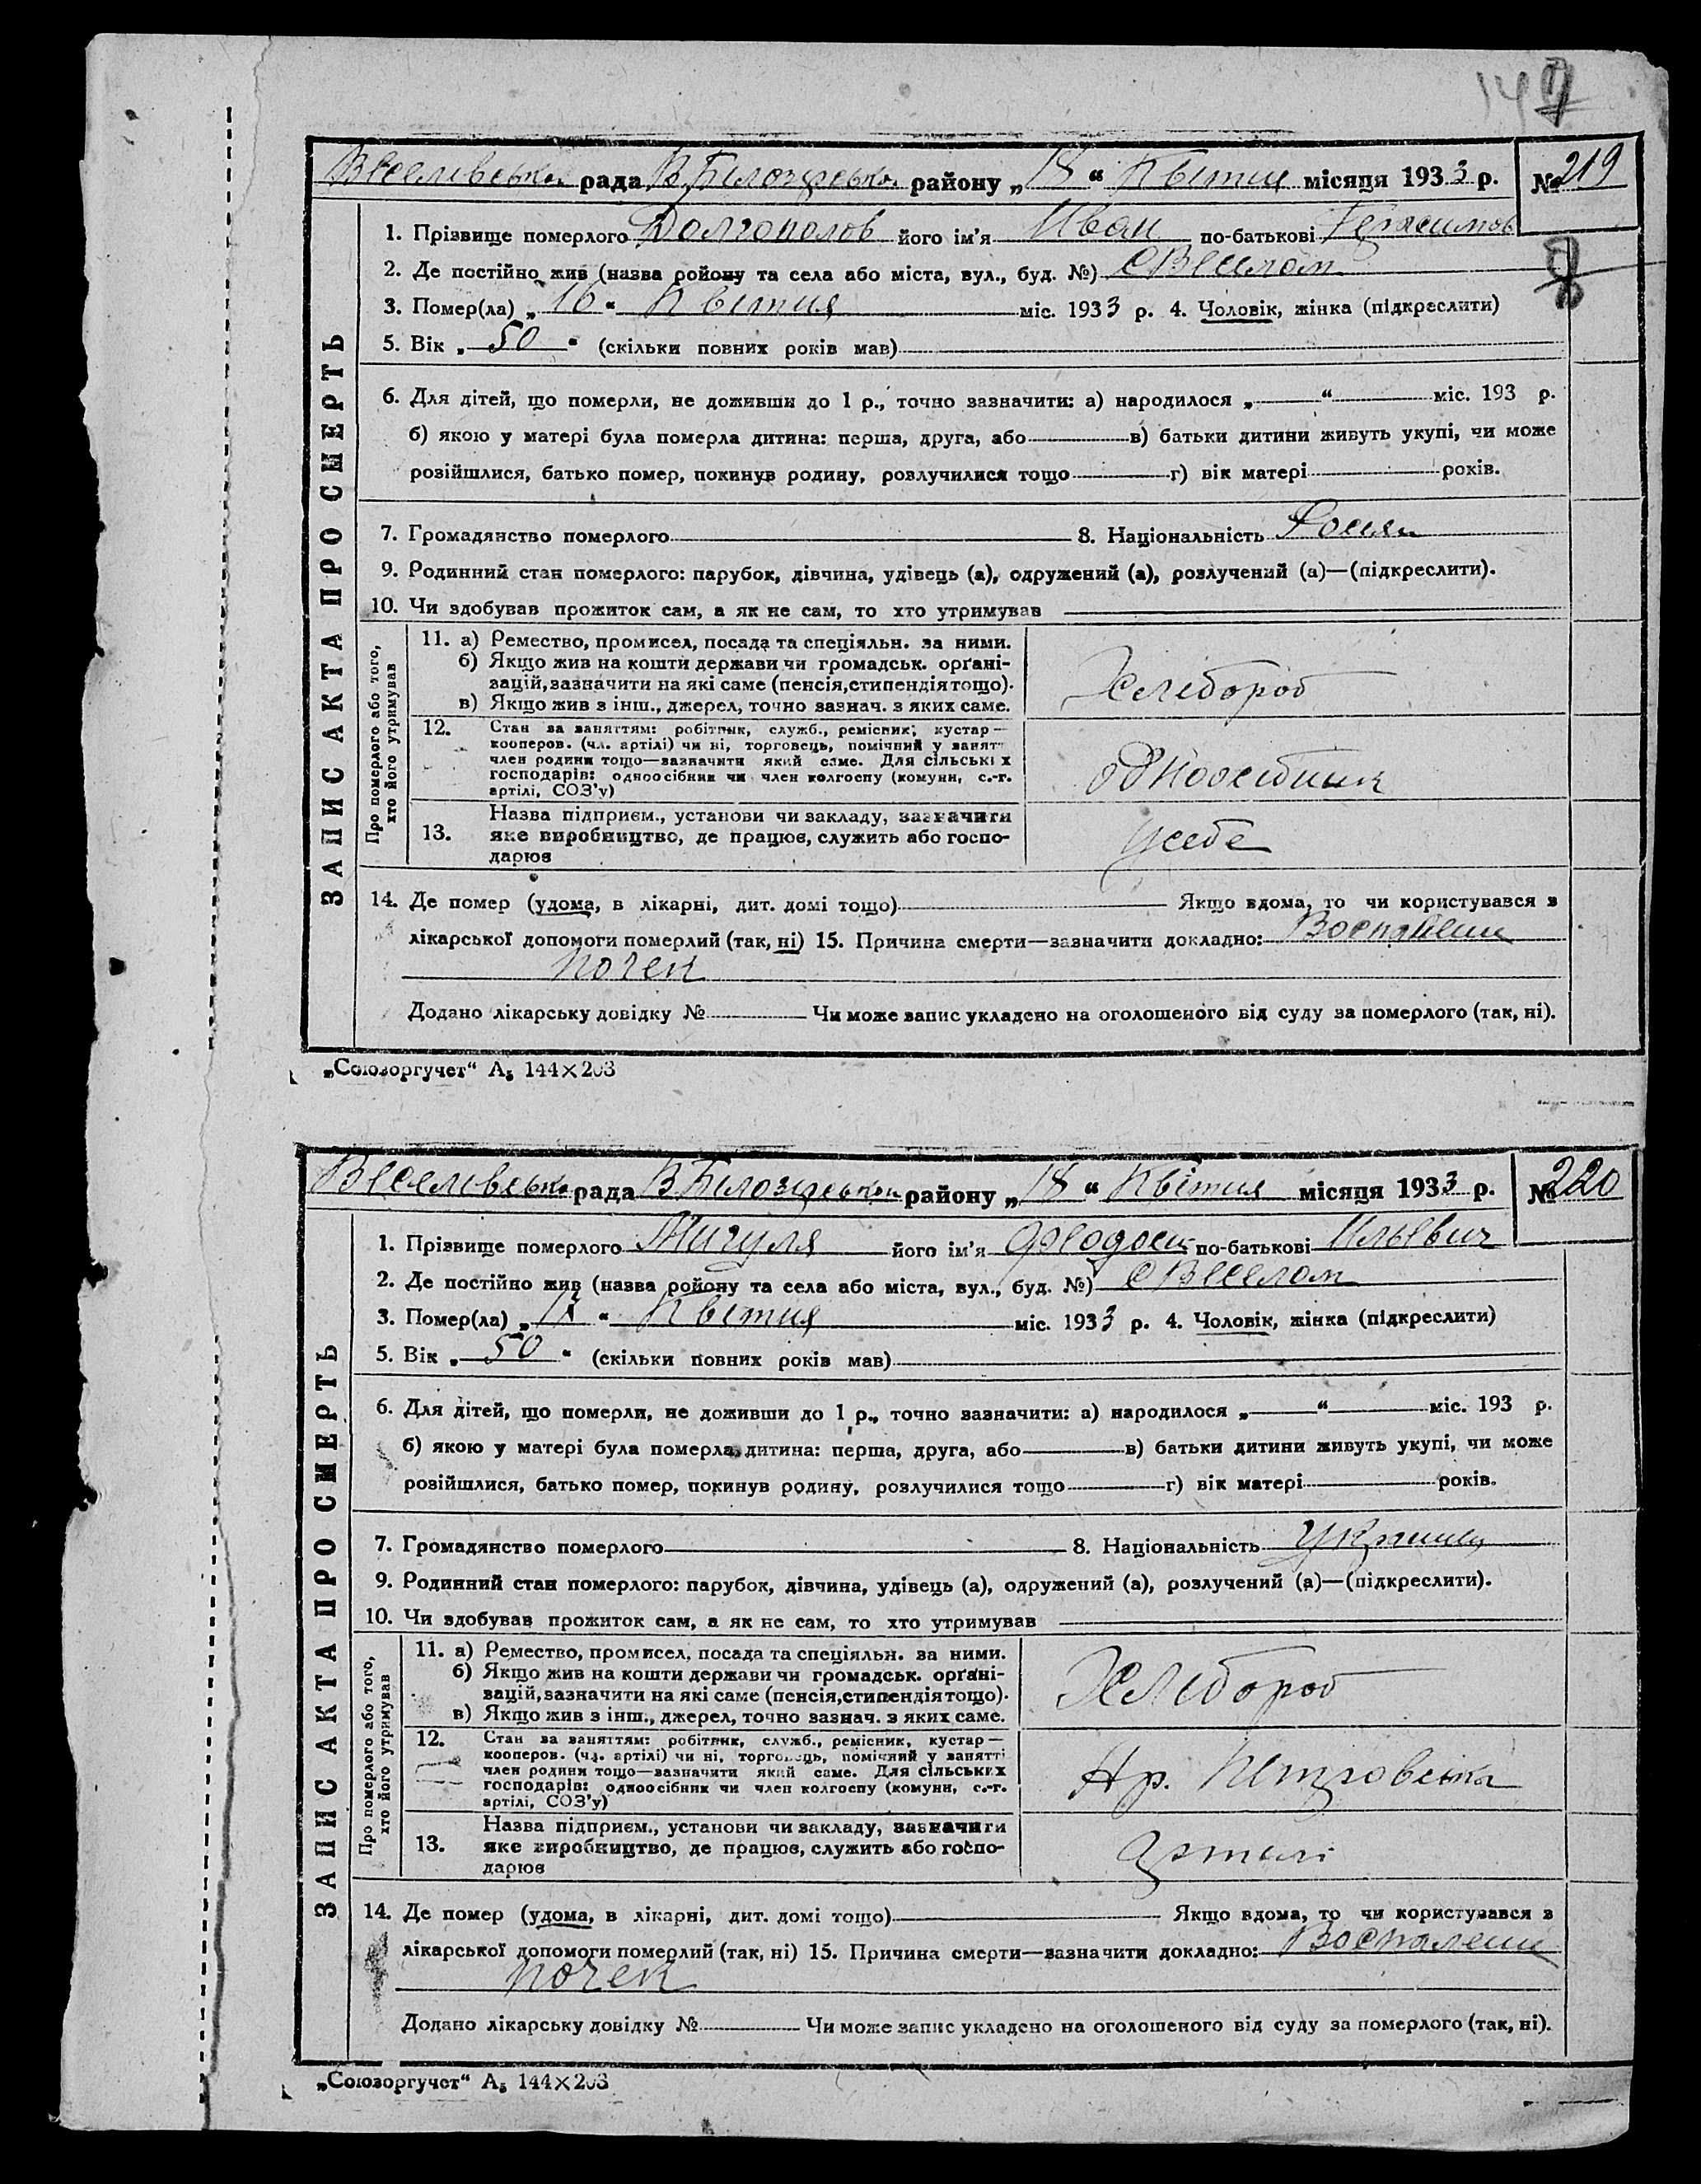 Веселівська рада В Білозерськ. району „18“ Квітня місяця 1933 р. № 219
1. Прізвище померлого Долгополов його ім'я Иван по-батькові Герасимов
2. Де постійно жив (назва ройону та села або міста, вул., буд. №) с Веселом
3. Помер(ла) „16“ Квітня міс. 1933 р. 4. Чоловік, жінка (підкреслити)
5. Вік „50“ (скільки повних років мав)
6. Для дітей, що померли, не доживши до 1 р., точно зазначити: а) народилося „ “ міс. 193 р.
б) якою у матері була померла дитина: перша, друга, або в) батьки дитини живуть укупі, чи може
розійшлися, батько помер, покинув родину, розлучилися тощо г) вік матері років.
7. Громадянство померлого 8. Національність Росиян
9. Родинний стан померлого: парубок, дівчина, удівець (а), одружений (а), розлучений (а)—(підкреслити).
10. Чи здобував прожиток сам, а як не сам, то хто утримував
11. а) Ремество, промисел, посада та спеціяльн. за ними.
б) Якщо жив на кошти держави чи громадськ. орґані-
зацій, зазначити на які саме (пенсія, стипендія тощо).
в) Якщо жив з інш., джерел, точно зазнач. з яких саме.
Хлебороб
12. Стан за заняттям: робітник, служб., ремісник, кустар—
кооперов. (чл. артілі) чи ні, торговець, помічний у занятт
член родини тощо—зазначити який саме. Для сільських
господарів: одноосібник чи член колгоспу (комуни, с.-г.
артілі, СОЗ'у)
одноосібник
13. Назва підприєм., установи чи закладу, зазначити
яке виробництво, де працює, служить або госпо-
дарює
усебе
14. Де помер (удома, в лікарні, дит. домі тощо) Якщо вдома, то чи користувався з
лікарської допомоги померлий (так, ні) 15. Причина смерти—зазначити докладно: Воспаление
почек
Додано лікарську довідку № Чи може запис укладено на оголошеного від суду за померлого (так, ні).
ЗАПИС АКТА ПРО СМЕРТЬ
Про померлого або того,
хто його утримував
„Союзоргучет“ А₅ 144×203
Веселівська рада В Білозерськ. району „18“ Квітня місяця 1933 р. № 220
1. Прізвище померлого Жигуля його ім'я Феодосий по-батькові Ильевич
2. Де постійно жив (назва ройону та села або міста, вул., буд. №) с Веселом
3. Помер(ла) „ “ Квітня міс. 1933 р. 4. Чоловік, жінка (підкреслити)
5. Вік „50“ (скільки повних років мав)
6. Для дітей, що померли, не доживши до 1 р., точно зазначити: а) народилося „ “ міс. 193 р.
б) якою у матері була померла дитина: перша, друга, або в) батьки дитини живуть укупі, чи може
розійшлися, батько помер, покинув родину, розлучилися тощо г) вік матері років.
7. Громадянство померлого 8. Національність Украинец
9. Родинний стан померлого: парубок, дівчина, удівець (а), одружений (а), розлучений (а)—(підкреслити).
10. Чи здобував прожиток сам, а як не сам, то хто утримував
11. а) Ремество, промисел, посада та спеціяльн. за ними.
б) Якщо жив на кошти держави чи громадськ. орґані-
зацій, зазначити на які саме (пенсія, стипендія тощо).
в) Якщо жив з інш., джерел, точно зазнач. з яких саме.
Хлебороб
12. Стан за заняттям: робітник, служб., ремісник, кустар—
кооперов. (чл. артілі) чи ні, торговець, помічний у занятті
член родини тощо—зазначити який саме. Для сільських
господарів: одноосібник чи член колгоспу (комуни, с.-г.
артілі, СОЗ'у)
Ар. Петровська
13. Назва підприєм., установи чи закладу, зазначити
яке виробництво, де працює, служить або госпо-
дарює
Артилі
14. Де помер (удома, в лікарні, дит. домі тощо) Якщо вдома, то чи користувався з
лікарської допомоги померлий (так, ні) 15. Причина смерти—зазначити докладно: Воспаление
почек
Додано лікарську довідку № Чи може запис укладено на оголошеного від суду за померлого (так, ні).
ЗАПИС АКТА ПРО СМЕРТЬ
Про померлого або того,
хто його утримував
„Союзоргучет“ А₅ 144×203